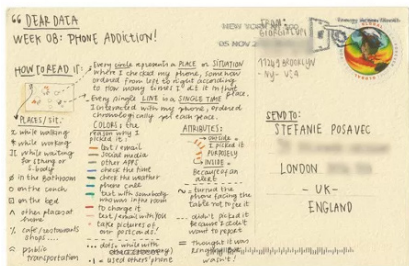 DEAR DATA
WEEK 08: PHONE ADDICTION!
HOW TO READ IT:
Every circle represents a PLACE or SITUATION
where I checked my phone, somehow
ordered from left to right according
to how many times I did it in that
place.
Every single LINE is a SINGLE TIME
I interacted with my phone, ordered
chronologically for each place.
PLACES/SIT.
while walking
while working
while waiting
for string or
in the bathroom
on the couch
in the bed
other places at
home
cafe/restaurants
shops....
public
transportation
COLORS: the
reason why I
picked it:
text/email
social media
other apps
check the time
check the weather
phone call
text with somebody
who was in the room
to charge it
text/email with you
take pictures of
our postcards!
dots: while with
used others' phone
ATTRIBUTES:
OUTSIDE
I picked it
PURPOSELY
INSIDE
Because of an
alert
I turned the
phone facing the
table not to see it
didn't picked it
because I didn't
want to respect
Thought it was
wasn't!
FROM:
GIORGIA LUPI
11249 BROOKLYN
NY - USA
SEND TO:
STEFANIE POSAVEC
LONDON
- UK -
ENGLAND
NEW YORK NY 100
GLOBAL